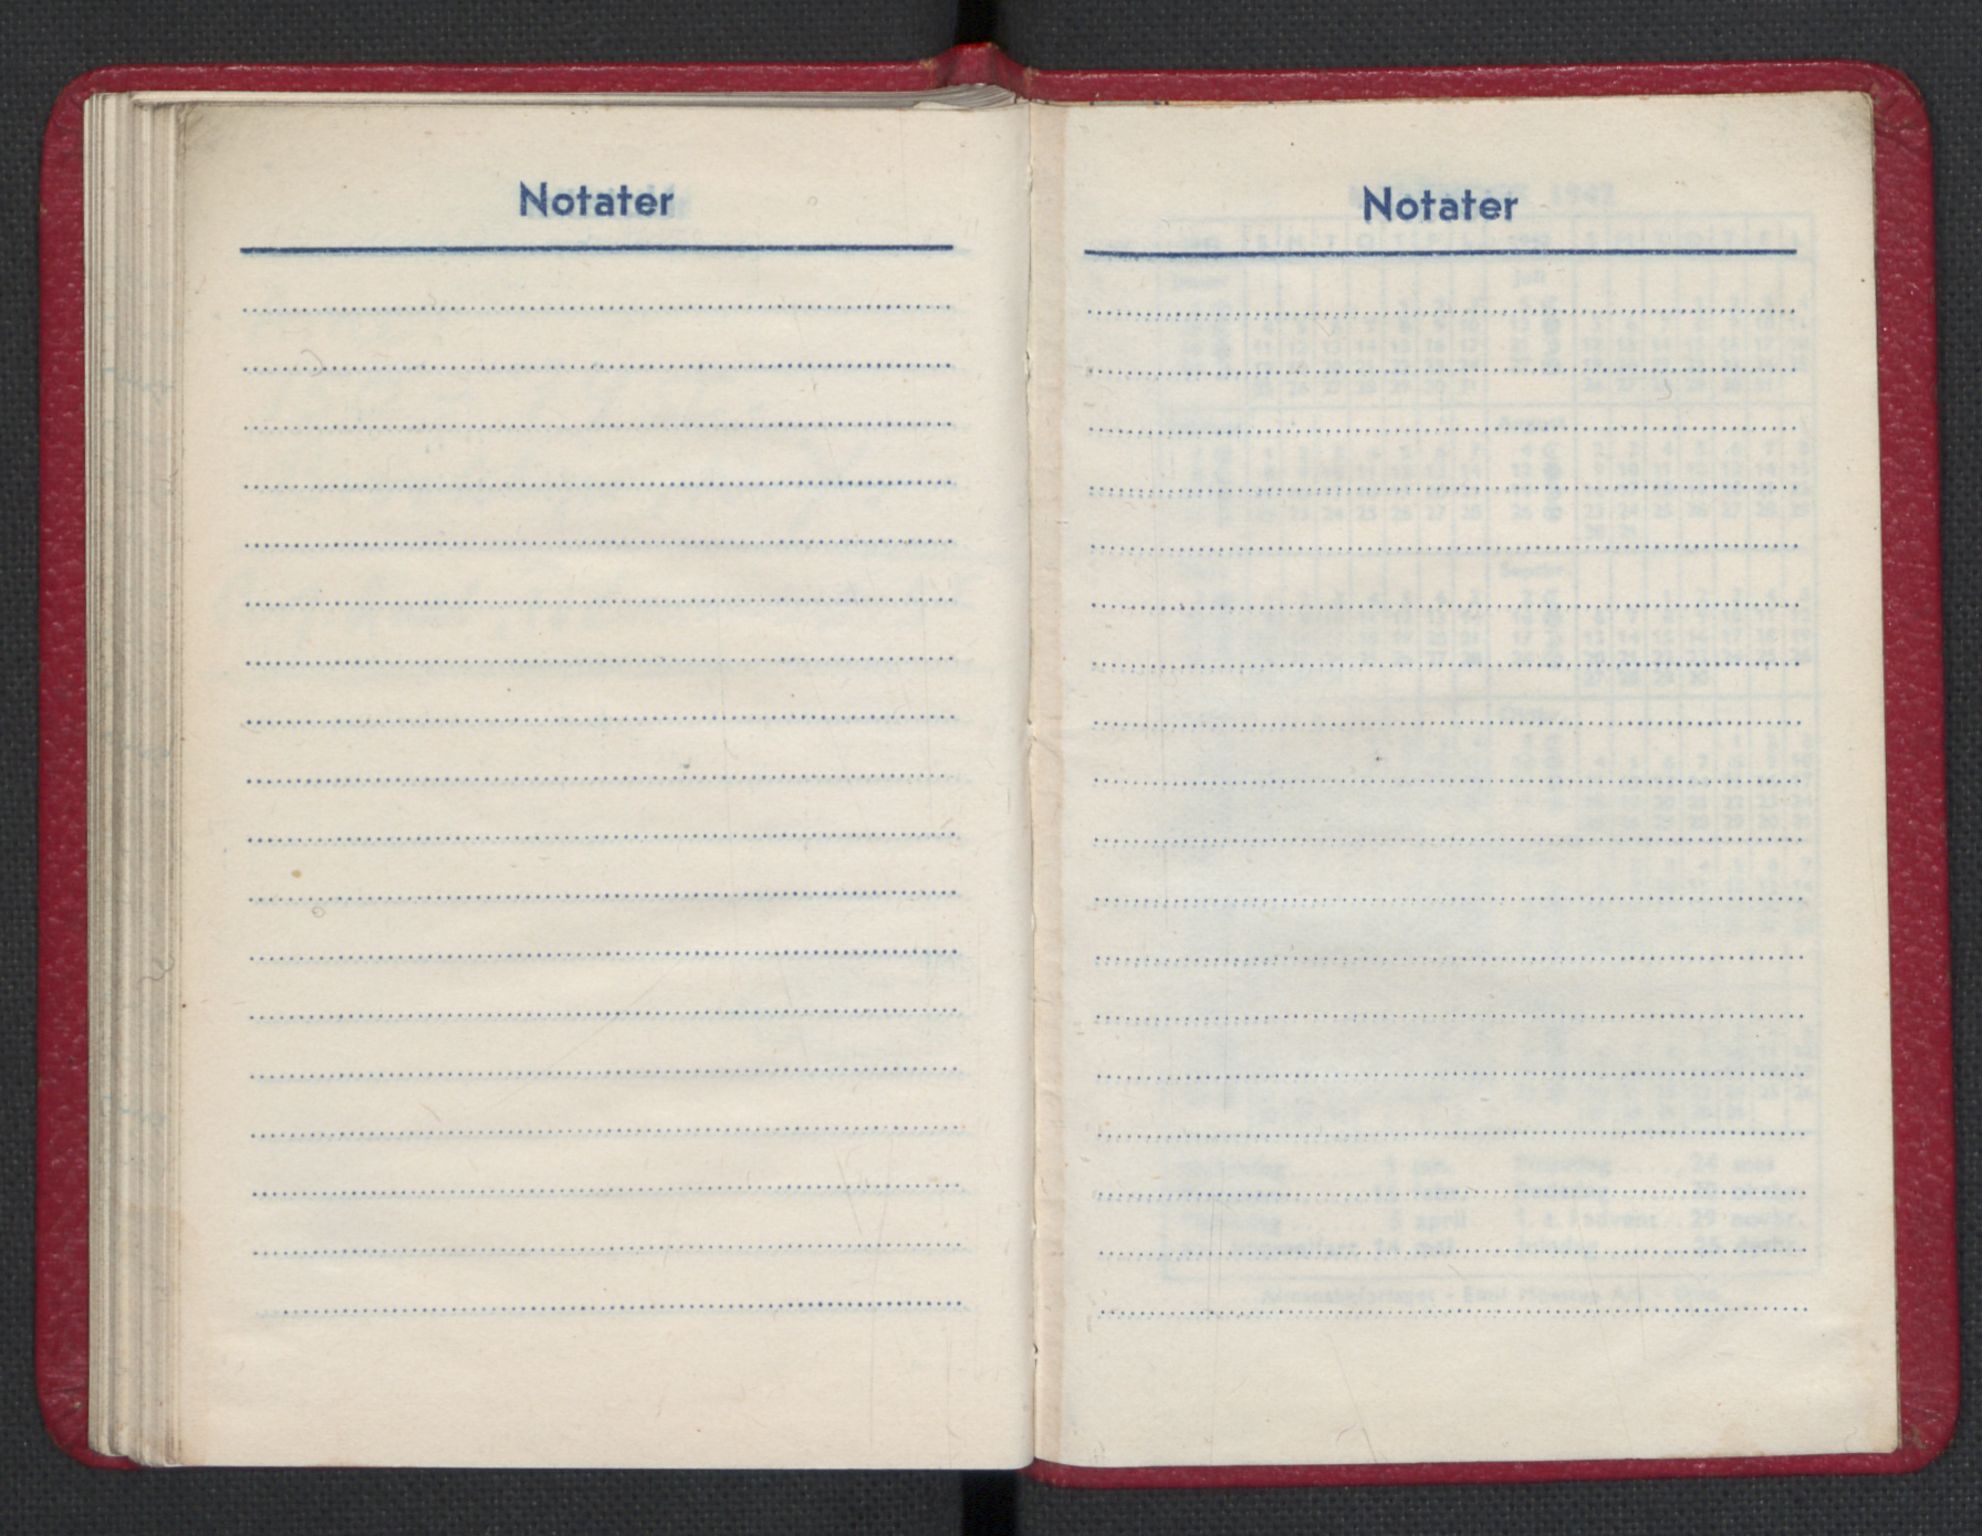 Notater
Notater